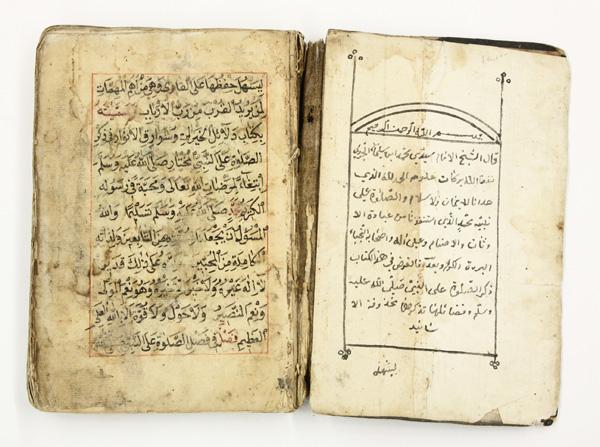 بسم الله الرحمن الرحيم
قال الشيخ الامام سيدي محمد ابن سليمان الجزولي
نفعنا الله ببركات علومه الحمد لله الذي
هدانا للايمان والاسلام والصلوة على
نبيه محمد الذي استنقذنا من عبادة الا
وثان والاصنام وعلى آله واصحابه النجباء
البررة الكرام وبعد فالغرض في هذا الكتاب
ذكر الصلوة على النبي صلى الله عليه
وسلم وفضائلها نذكرها محذوفة الا
سانيد
ليسهل
ليسهل حفظها على القارئ وهي من اهم المهمات
لمن يريد القرب من رب الارباب وسميته
بكتاب دلائل الخيرات وشوارق الانوار في ذكر
الصلوة على النبي المختار صلى الله عليه وسلم
ابتغاء لمرضات الله تعالى ومحبة في رسوله
الكريم محمد صلى الله عليه وسلم تسليما والله
المسئول ان يجعلنا من التابعين ولذاته
الكاملة من المحبين على ذلك قدير
لا اله غيره ولا خير الا خيره وهو نعم المولى
ونعم النصير ولا حول ولا قوة الا بالله العلي
العظيم فصل في فضل الصلوة على النبي صلى الله